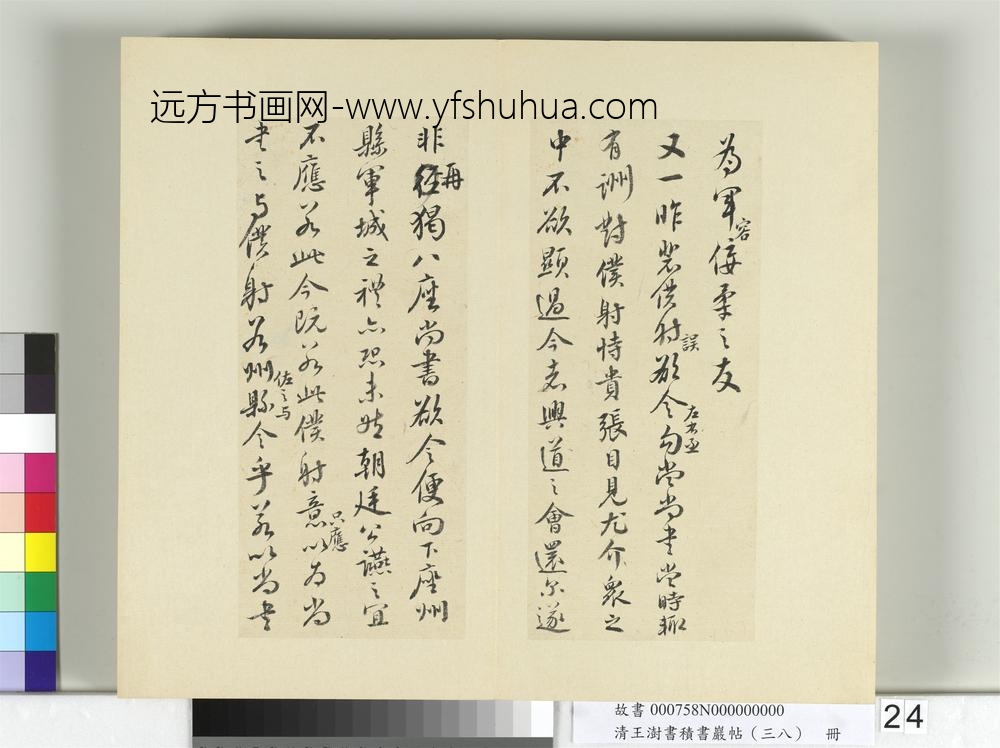 远方书画网-www.yfshuhua.com
為軍容佞柔之友
又一昨裴僕射誤欲令左右丞勾當尚書當時輒
有詶對僕射恃貴張目見尤介衆之
中不欲顯過今者興道之會還尔遂
非再獨八座尚書欲令便向下座州
縣軍城之禮亦恐未然朝廷公讌之宜
不應若此今既若此僕射意只應以为尚
書之与僕射若州縣佐之与令乎若以尚書
故書 000758N000000000
清王澍書積書巖帖（三八） 冊
24